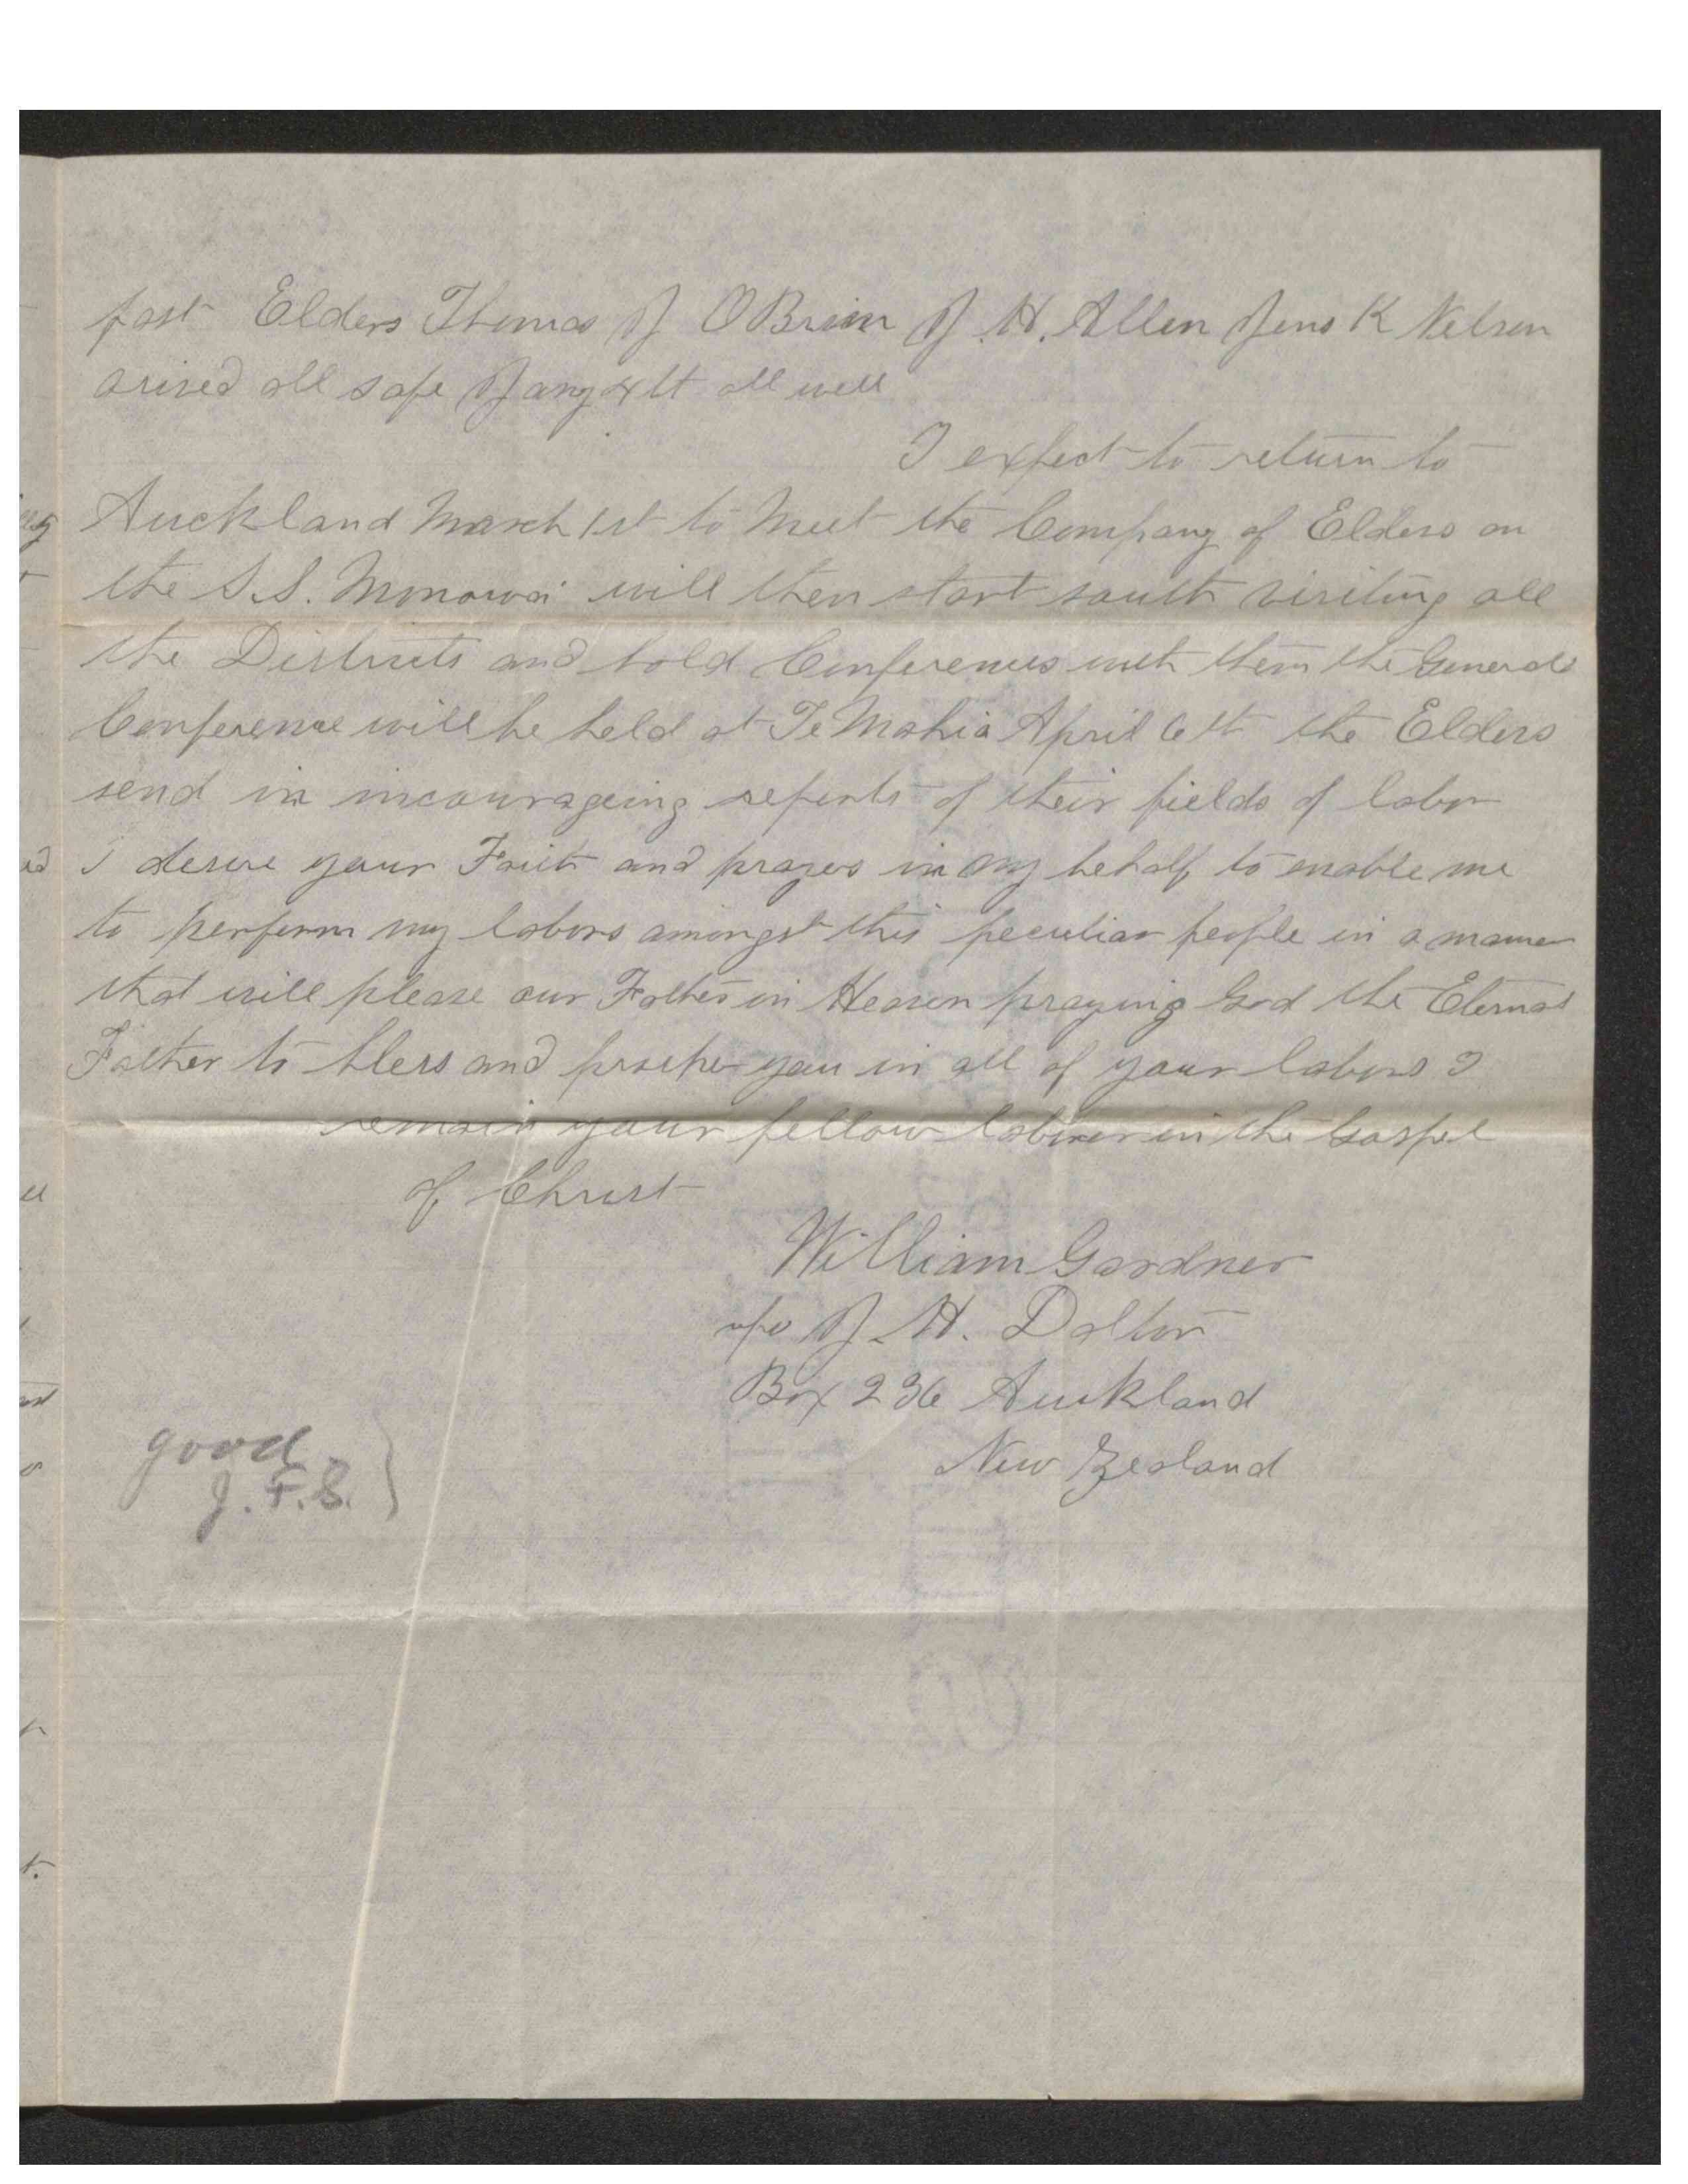 fast Elders Thomas J OBrien J. H. Allen Jens K Nelsen
arived all safe Jany 4th all well
I expect to return to
Auckland March 1st to Meet the Company of Elders on
the S.S. Monowai will then start south visiting all
the Districts and hold Conferences with them the General
Conference will be held at Te Mahia April 6th the Elders
send in incourageing reports of their fields of labor
I desire your Faith and prayers in my behalf to enable me
to perform my labors amongst this peculiar people in a manner
that will please our Father in Heaven praying God the Eternal
Father to bless and prosper you in all of your labors I
remain your fellow laborer in the Gospel
of Christ
William Gardner
c/o J. H. Dalton
Box 236 Auckland
New Zealand
good
J. F. S.